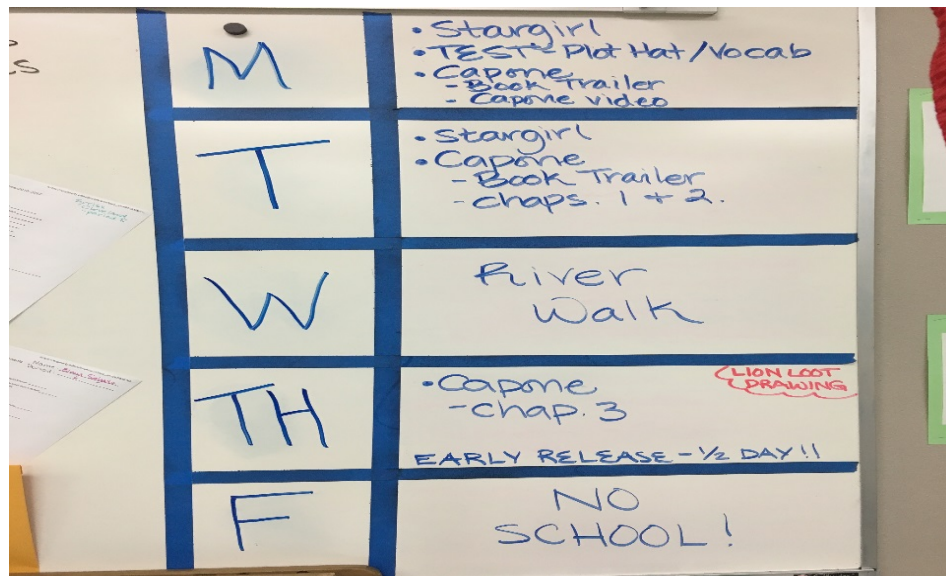 M
• Stargirl
• TEST - Plot Hat/Vocab
• Capone
- Book Trailer
- Capone video
T
• Stargirl
• Capone
- Book Trailer
- Chaps. 1 + 2.
W
River
Walk
TH
• Capone
- Chap. 3
LION LOOT
DRAWING
EARLY RELEASE - 1/2 DAY!!
F
NO
SCHOOL!